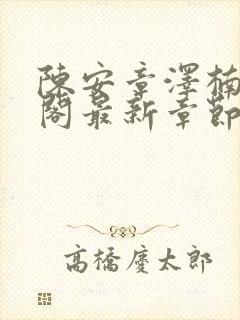 陳安章澤楠
閣最新章節
高橋慶太郎